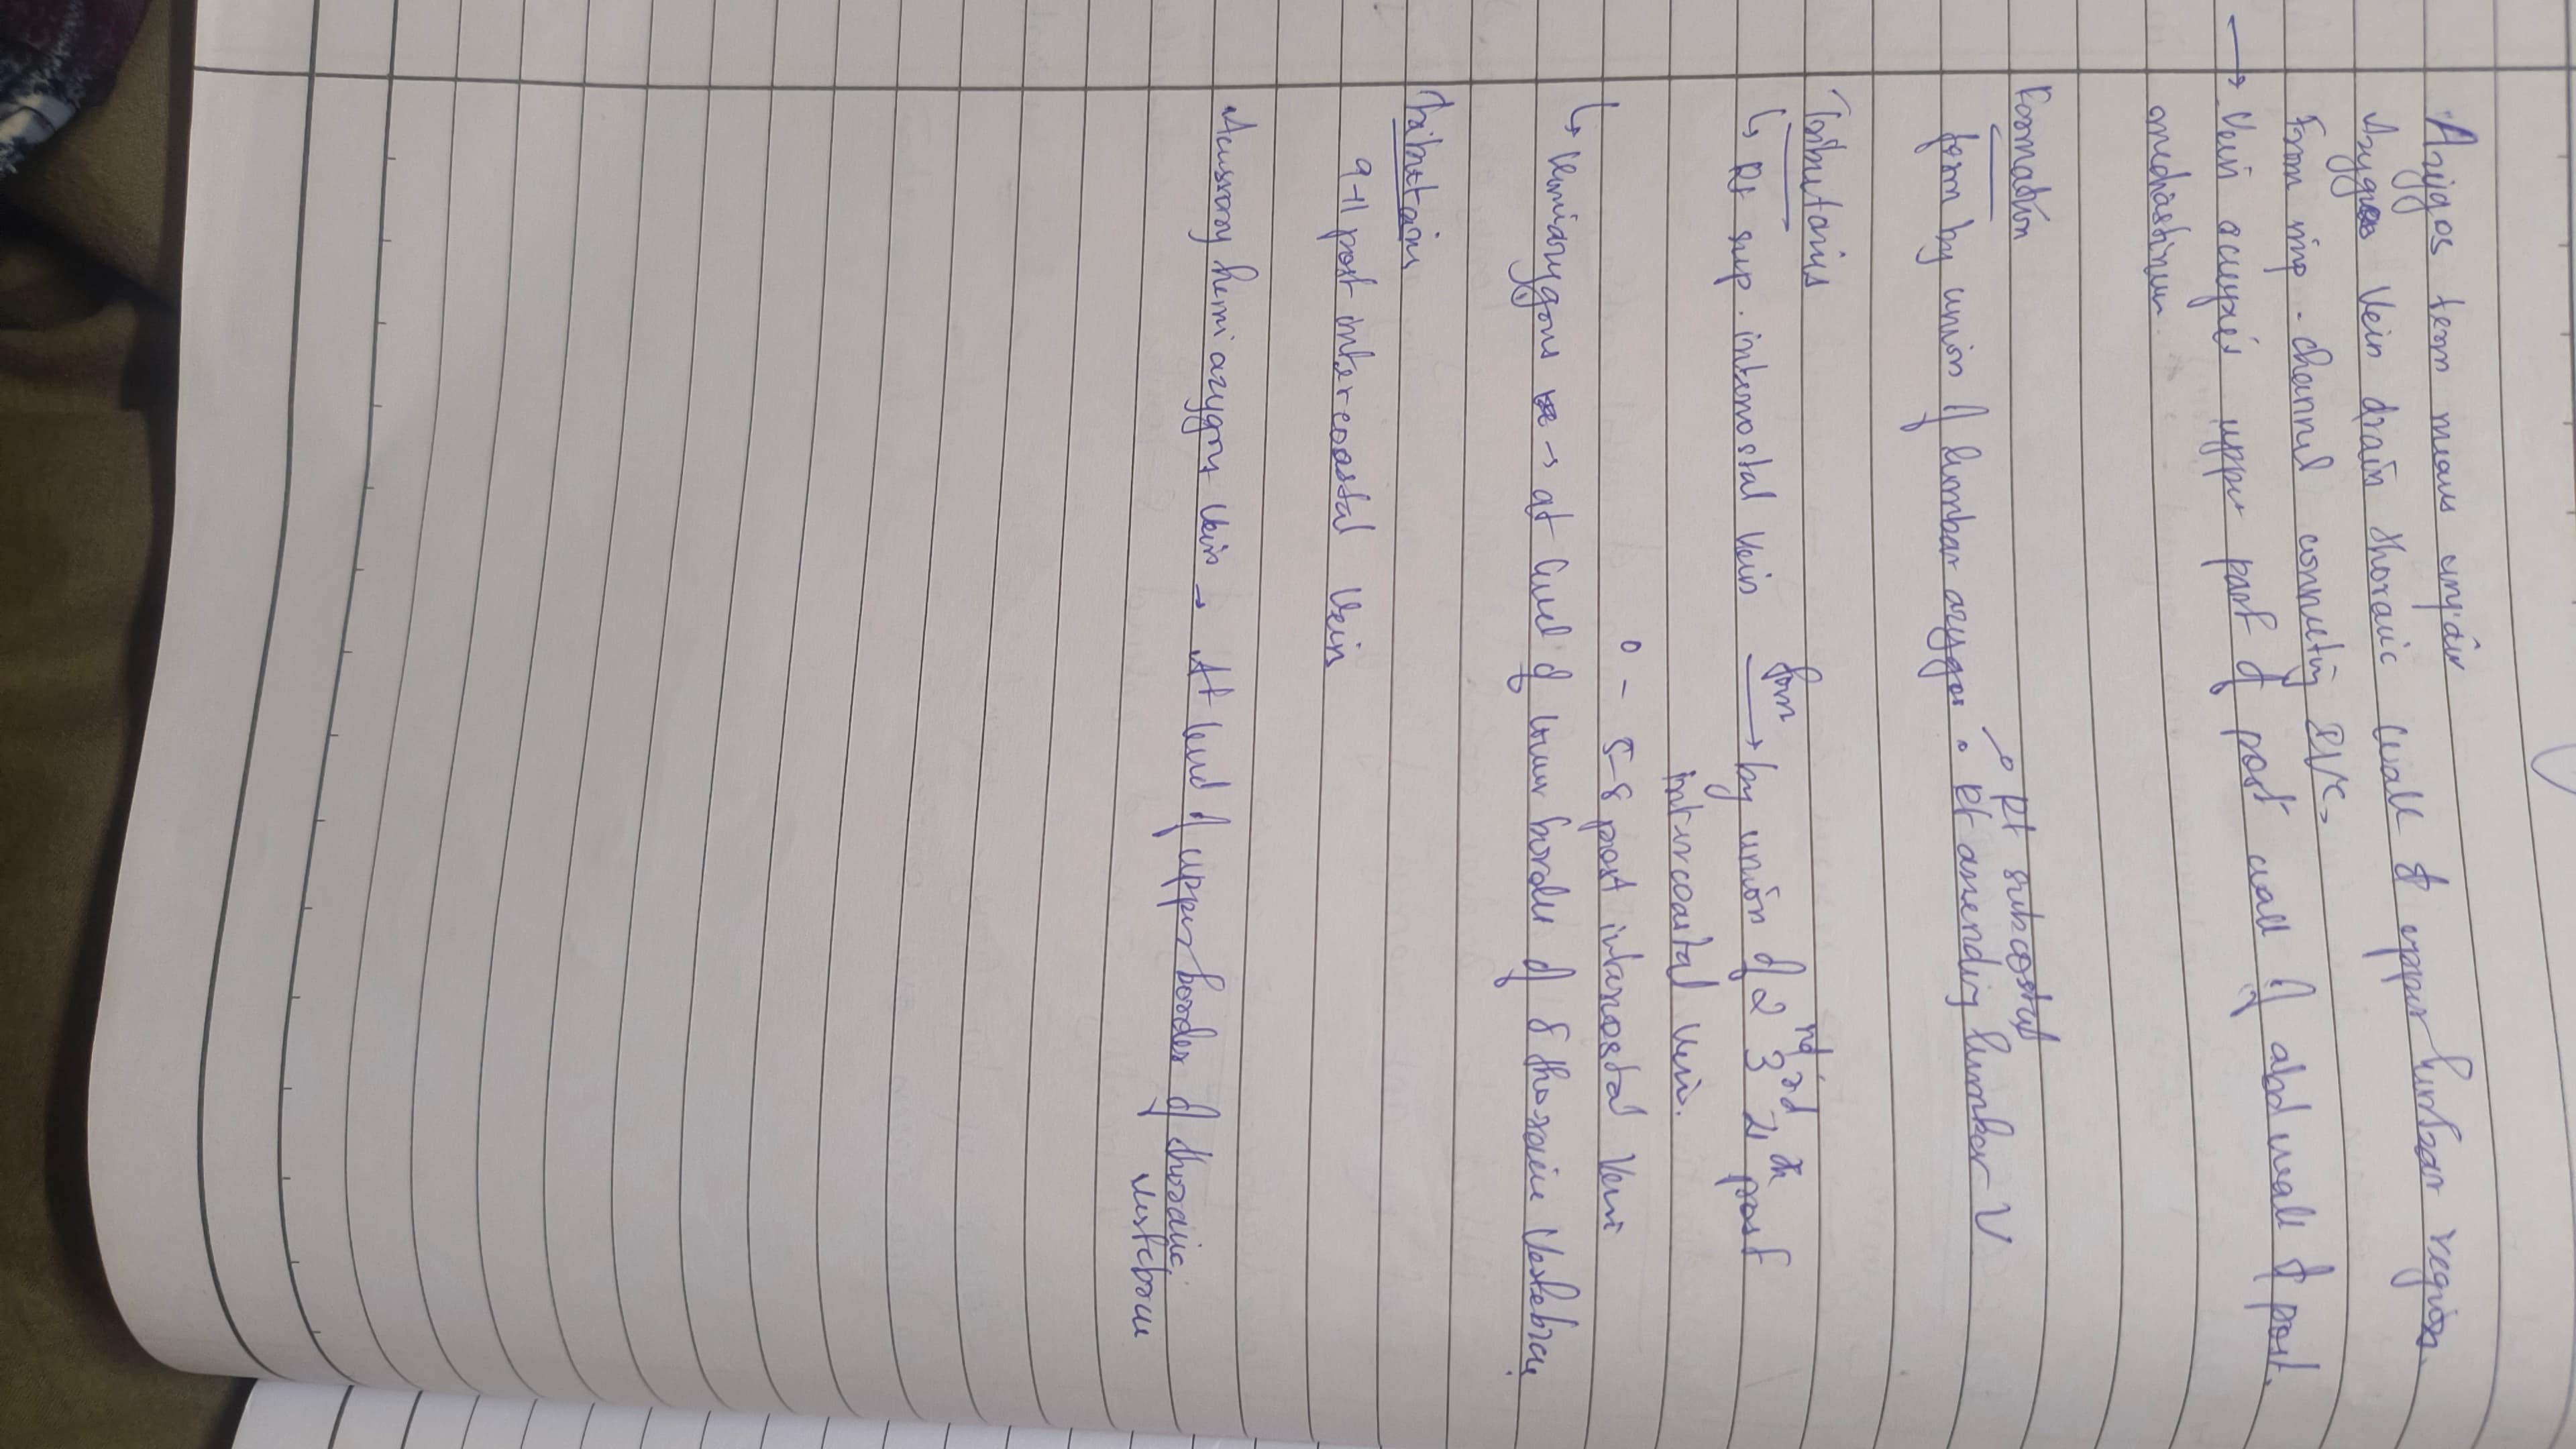 Azygos term means unpair
Azygos Vein drain thoracic wall & upper lumbar region.
From imp. channel connectig SVC.
→ Vein occupies upper part of post wall of abd wall & post.
mediastinum.
Formation
form by union of lumbar azygos. Rt subcostal
Rt ascending lumbar V
Tributaries
↳ Rt sup. intercostal Vein form → by union of 2nd 3rd 4th post
intercoastal Vein.
5-8 post intercostal Vein
↳ Hemiazygous → at level of lower border of 8 thoracic Vertebrae.
9-11 post intercoastal Vein
Acessory hemi azygous Vein → At level of upper border of thoracic